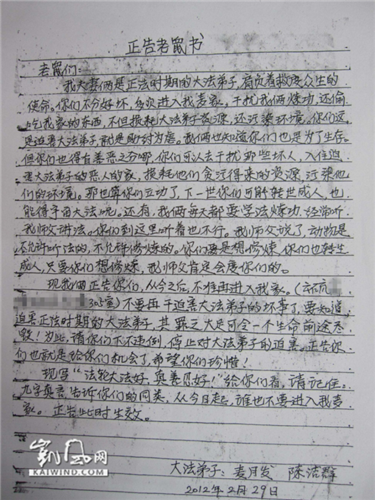 正告老鼠书
老鼠们:
我夫妻俩是正法时期的大法弟子,肩负着救度众生的
使命。你们不分好坏,多次进入我麦家,干扰我俩炼功,还偷
吃我家的东西,不但损耗大法弟子资源,还污染环境。你们这
是迫害大法弟子,就是助纣为虐。我俩也知道你们也是为了生存。
但你们也得有善恶之分哪,你们可以去干扰那些坏人,入住迫
害大法弟子的恶人的家,损耗他们贪污得来的资源,污染他
们的环境。那也算你们立功了,下一世你们可能转世成人,也
能得宇宙大法呢。还有,我俩每天都要学法炼功,经常听
我师父讲法。你们到这里听着也不行。我师父说了,动物是
不允许听法的,不允许修炼的。你们要是想修炼,你们也转生
成人,只要你们想修炼,我师父肯定会度你们的。
现我俩正告你们,从今之后,不准再进入我家。
室)不要再干迫害大法弟子的坏事了,要知道,
迫害正法时期的大法弟子,其罪之大足可令一个生命前途尽
毁!为此,请你们不不违例,停止对大法弟子的迫害。正告你
们也就是给你们机会了,希望你们珍惜!
现写“法轮大法好,真善忍好!”给你们看。请记住,
九字真言告诉你们的同类,从今日起,谁也不要进入我麦
家。正告此时生效。
大法弟子:麦月发 陈洁群
2012年2月29日
凯风网
KAIWIND.COM